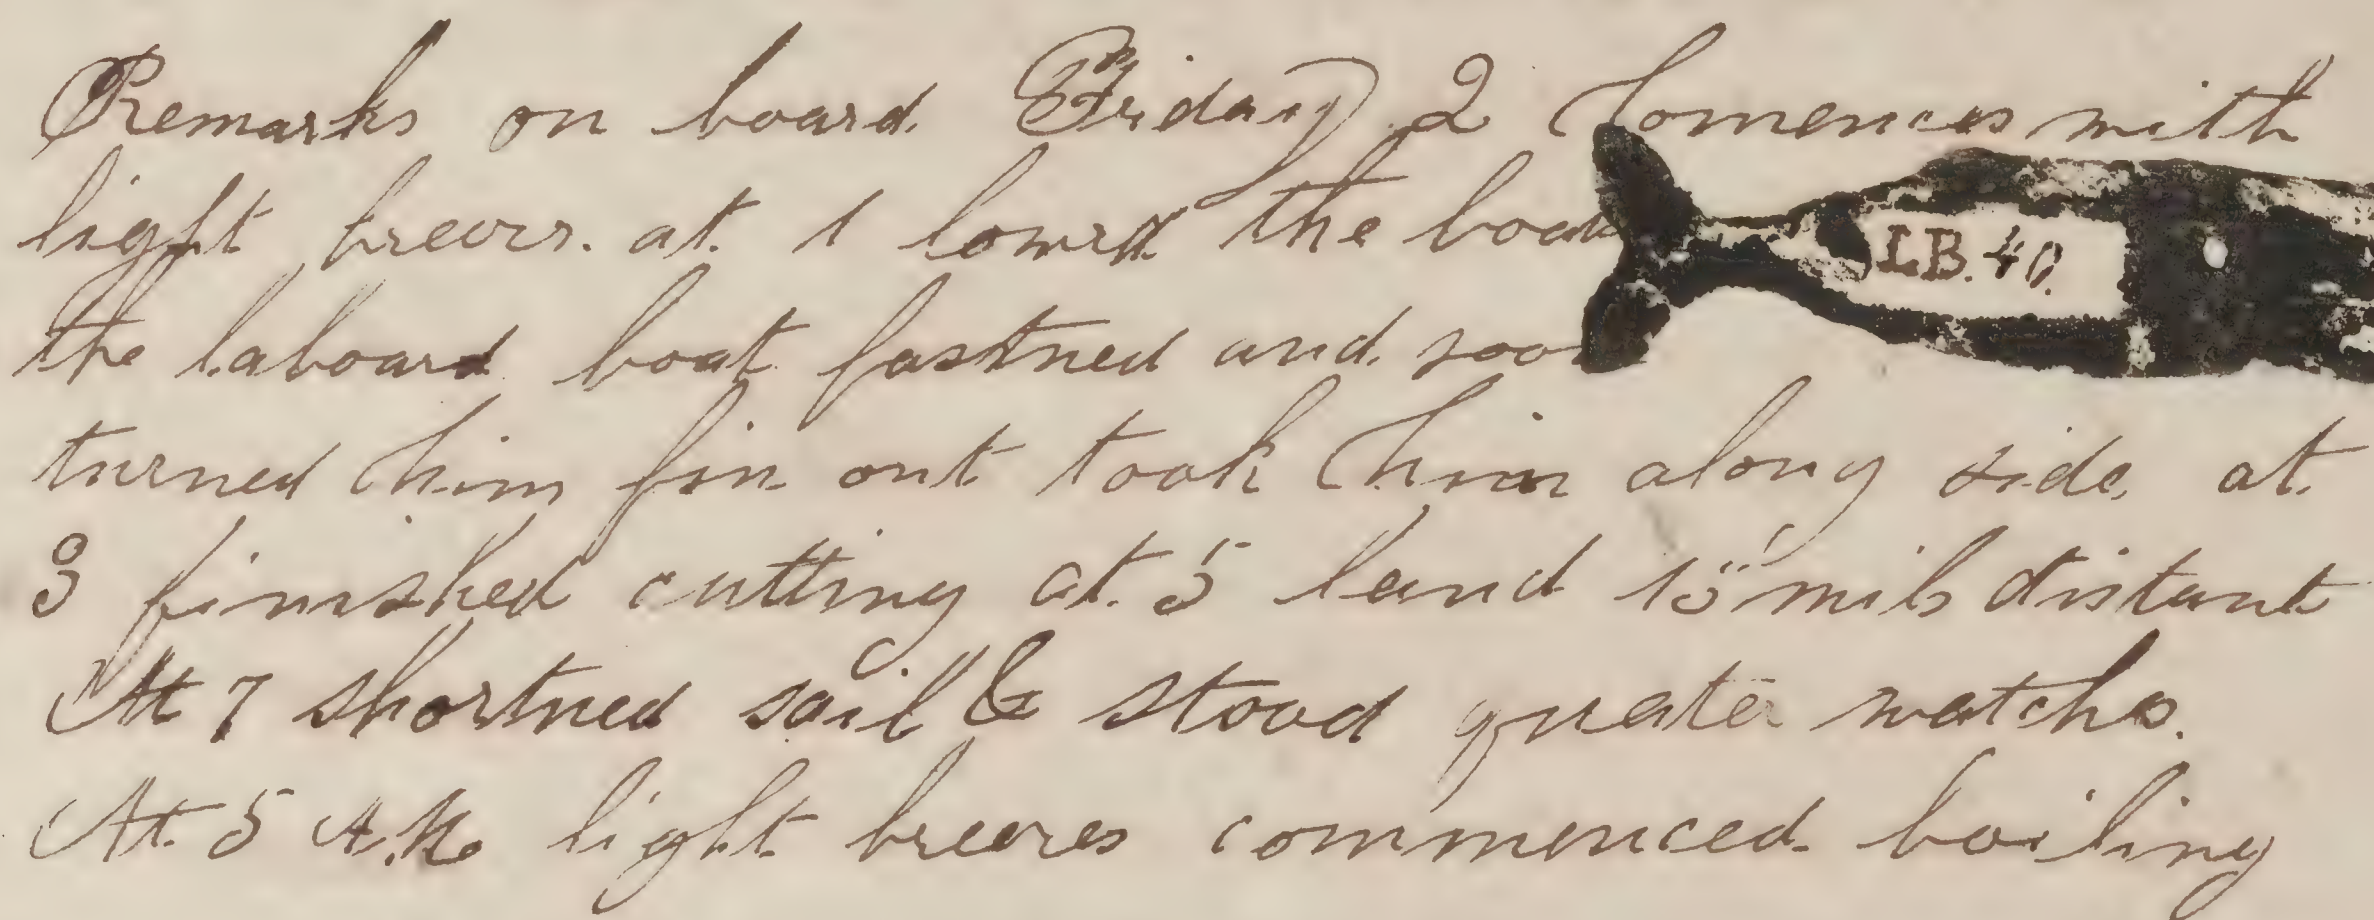 Remarks on board Friday 2 Comences with
light breezs. at 1 lowrd the boats LB. 40.
the laboard boat fastned and soon
turned him fin out took him along side. at
3 finished cutting at 5 land 15 mils distant
At 7 shortned sail & stood quater watchs.
At 5 A.M. light breezes commenced boiling